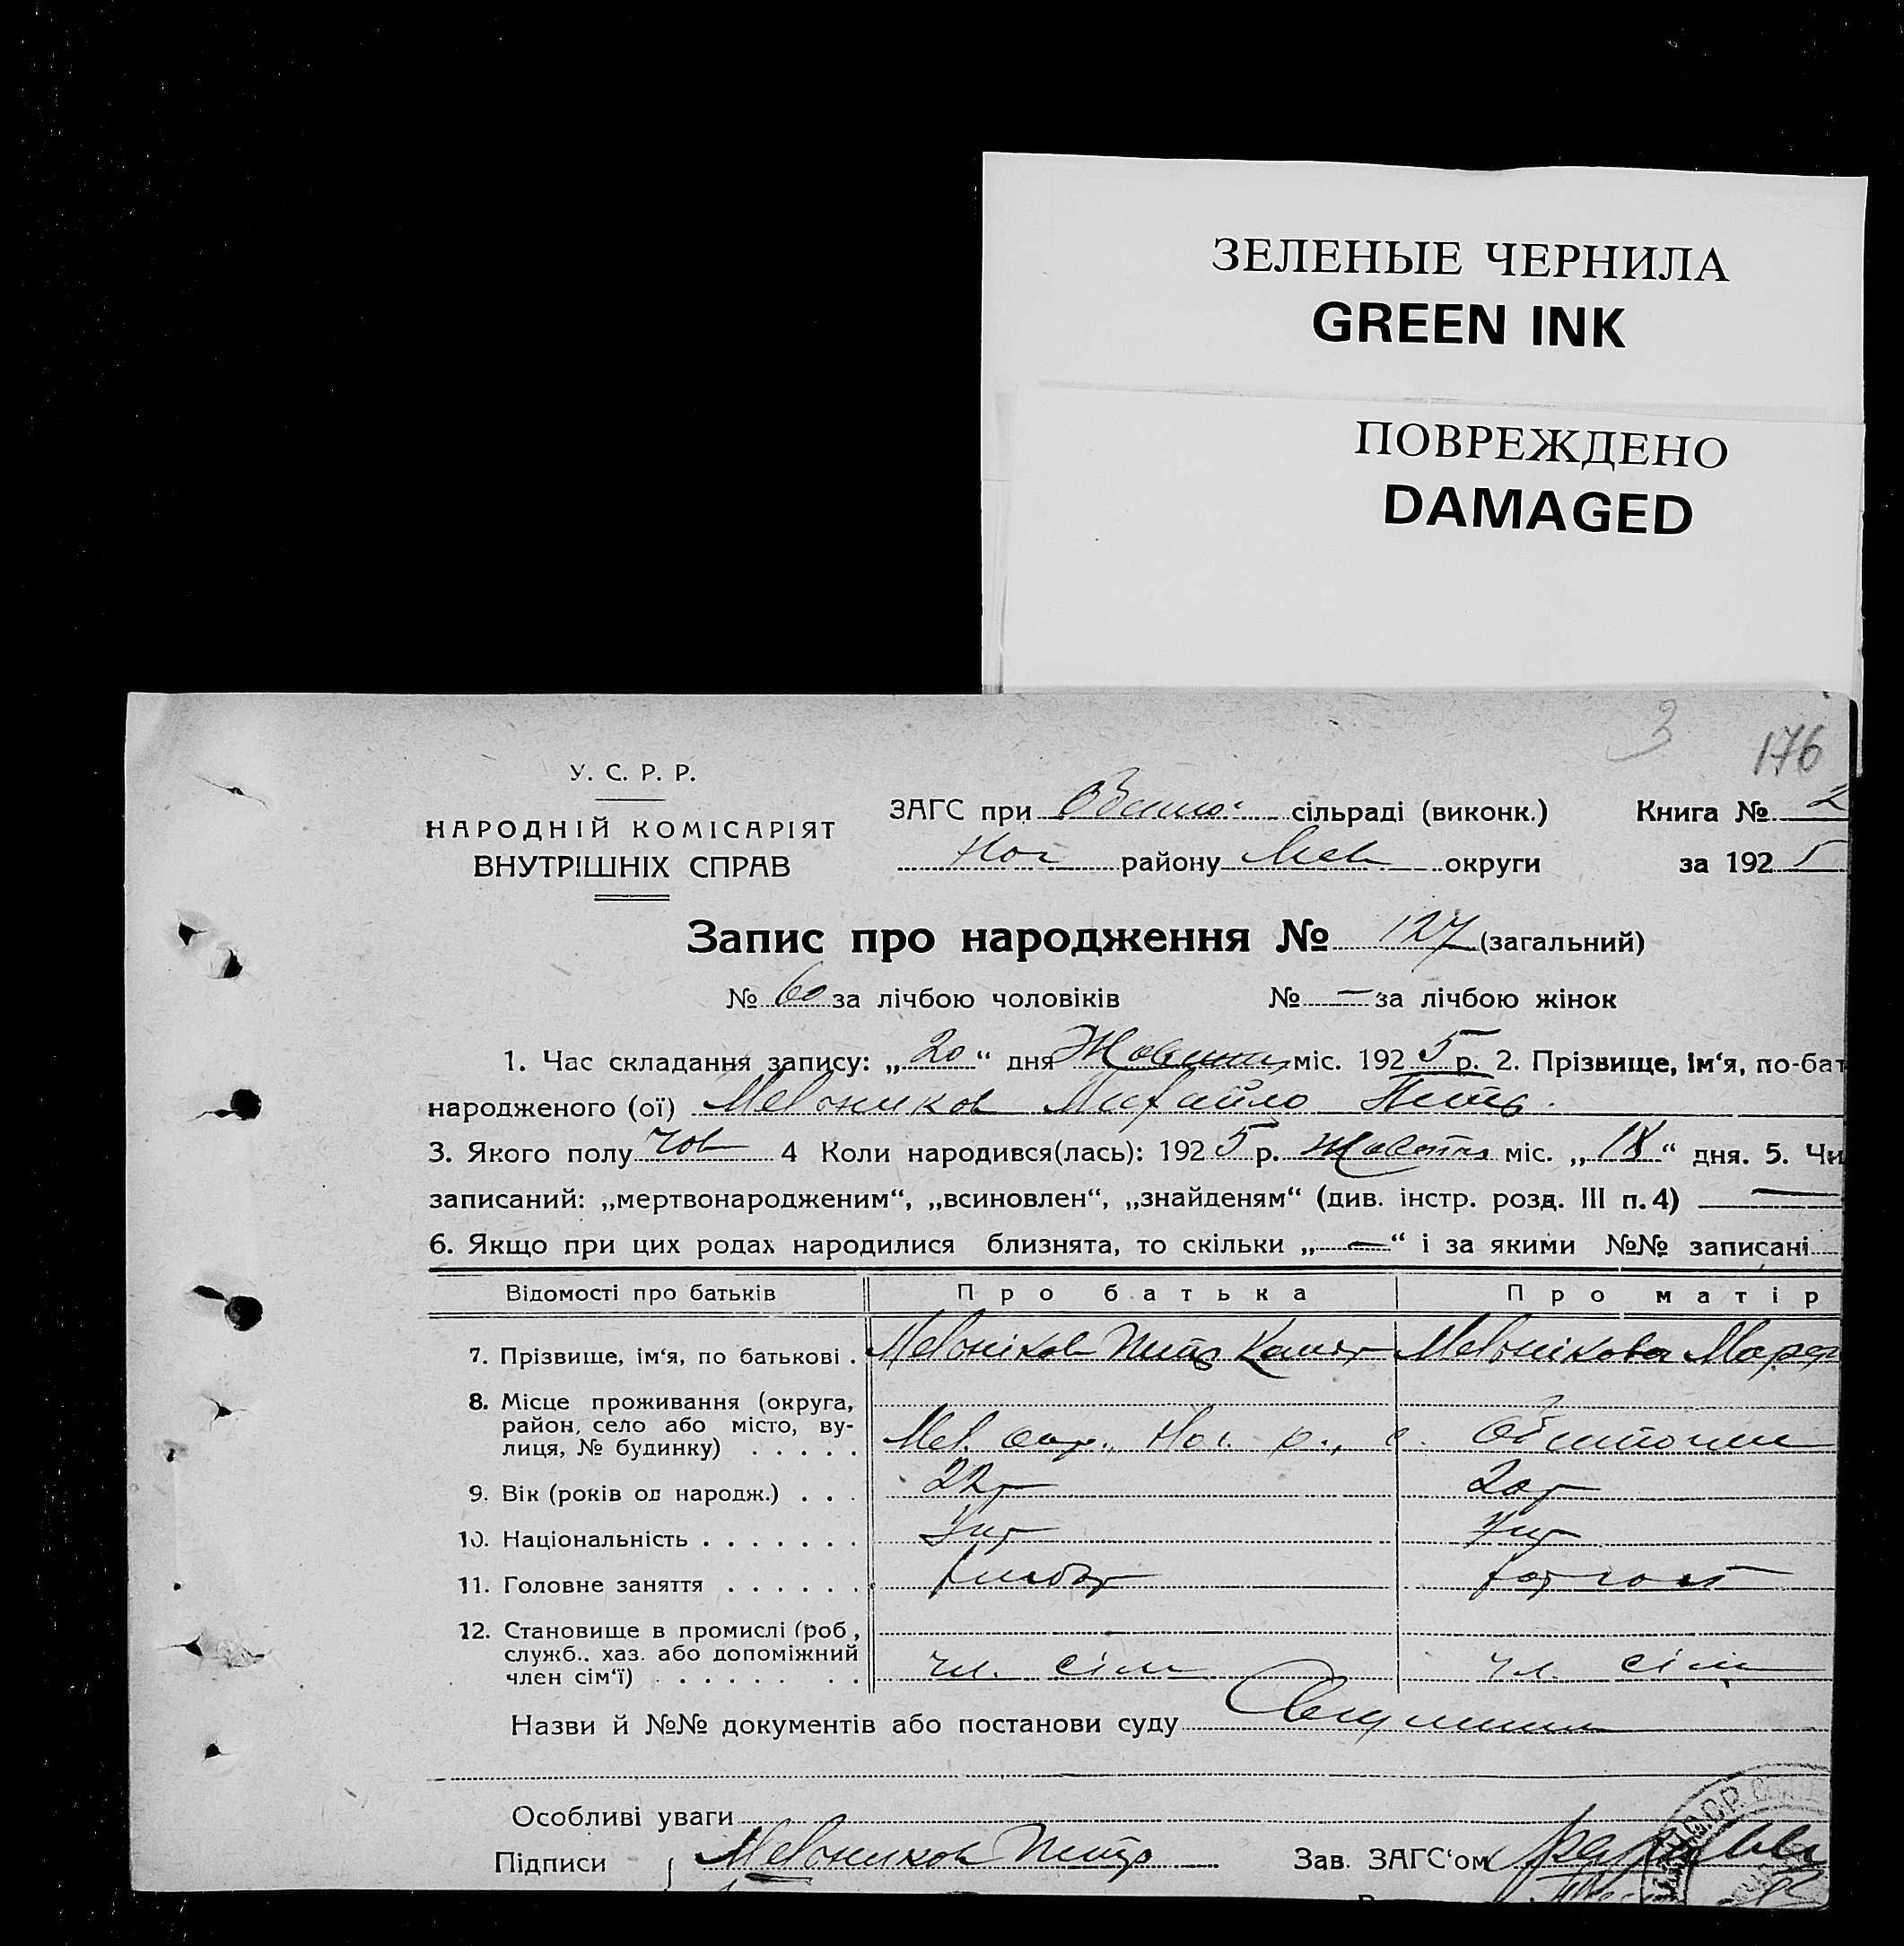 ЗЕЛЕНЫЕ ЧЕРНИЛА
GREEN INK
ПОВРЕЖДЕНО
DAMAGED
3 176
У. С. Р. Р.
НАРОДНІЙ КОМІСАРІЯТ
ВНУТРІШНІХ СПРАВ
ЗАГС при сільраді (виконк.) Книга № 2
Ног району Мел округи за 1925
Запис про народження № 127 (загальний)
№ 60 за лічбою чоловіків № — за лічбою жінок
1. Час складання запису: „20“ дня Жовтня міс. 1925 р. 2. Прізвище, ім‘я, по-бат
народженого (ої) Мельников Михайло Петр.
3. Якого полу чол 4 Коли народився(лась): 1925 р. Жовтня міс. „18“ дня. 5. Чи
записаний: „мертвонародженим“, „всиновлен“, „знайденям“ (див. інстр. розд. III п. 4) —
6. Якщо при цих родах народилися близнята, то скільки „—“ і за якими №№ записані
Відомості про батьків Про батька Про матір
7. Прізвище, ім‘я, по батькові . Мельніков Петр Мельнікова
8. Місце проживання (округа,
район, село або місто, ву-
лиця, № будинку) . . . . . Мел. окр., Ног. р., с. Обиточне
9. Вік (років од народж.) . . . 22 20
10. Національність . . . . . . . Укр Укр
11. Головне заняття . . . . . . хлібор
12. Становище в промислі (роб.,
служб., хаз. або допоміжний
член сім‘ї) . . . . . . . . чл. сім чл. сім
Назви й №№ документів або постанови суду
Особливі уваги
Підписи { Мельников Петр Зав. ЗАГС‘ом